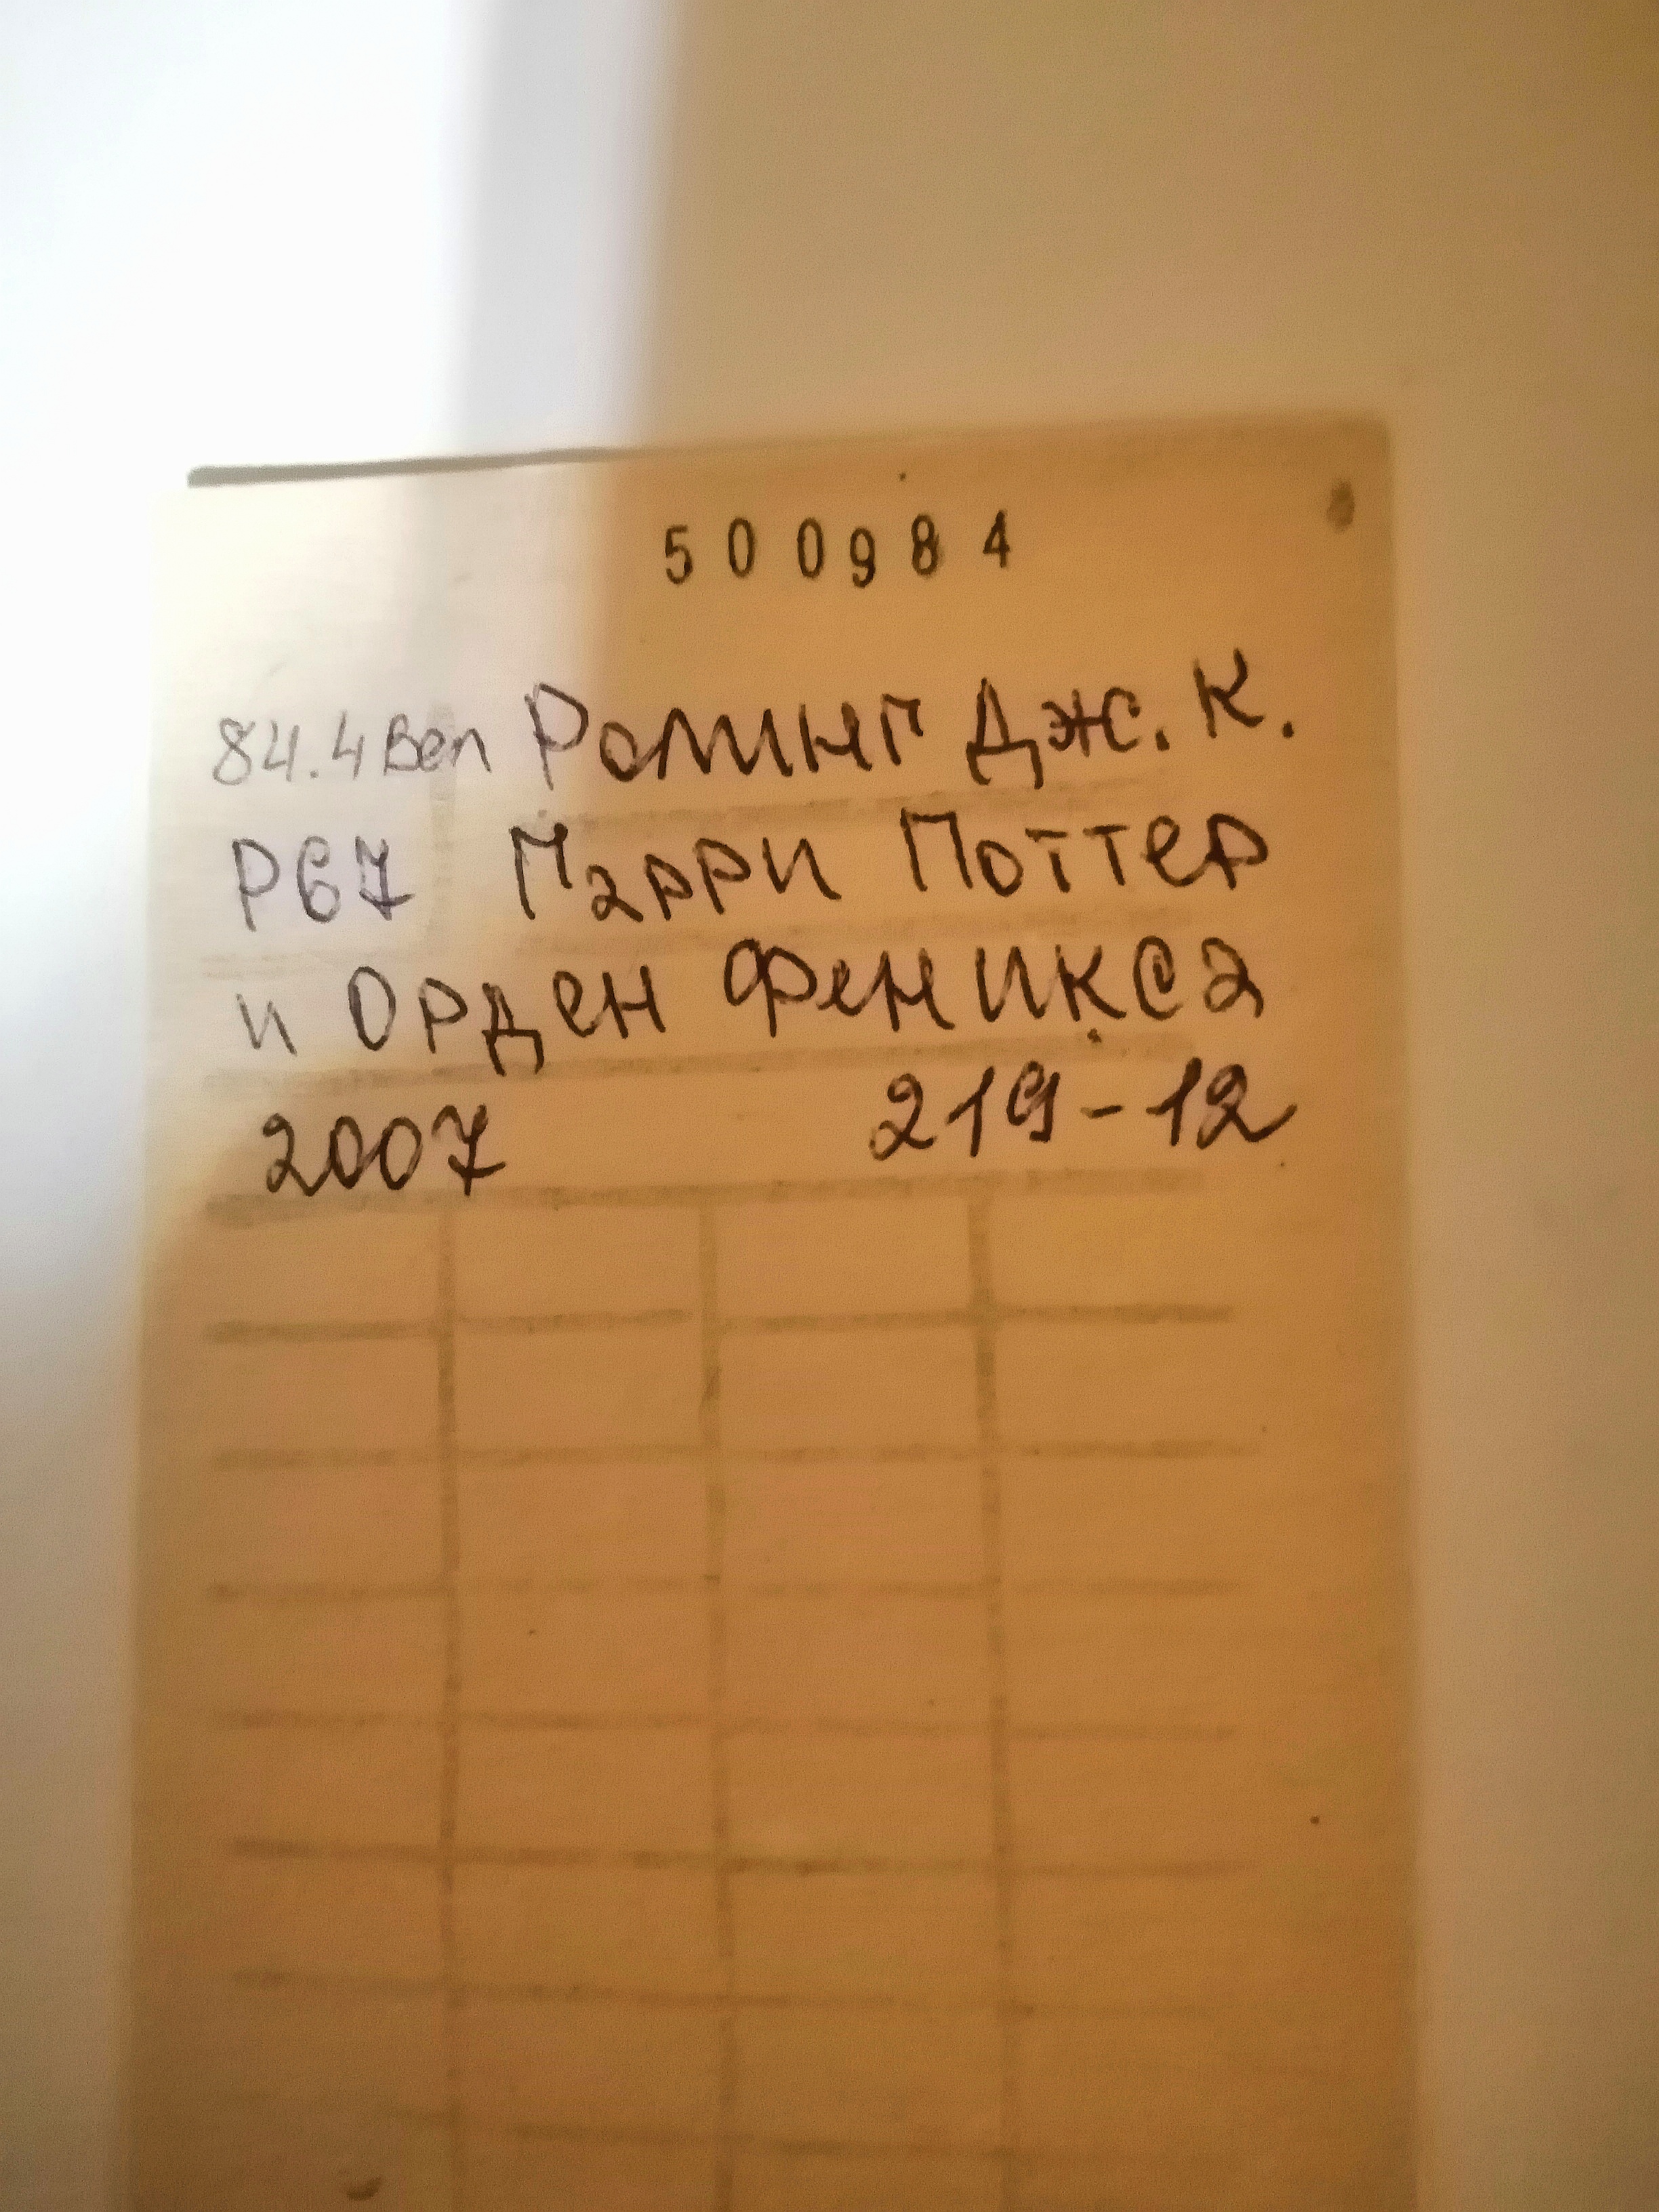 500984
84.4Вел Ролинг Дж. К.
Р67 Гарри Поттер
и Орден Феникса
2007 219-12